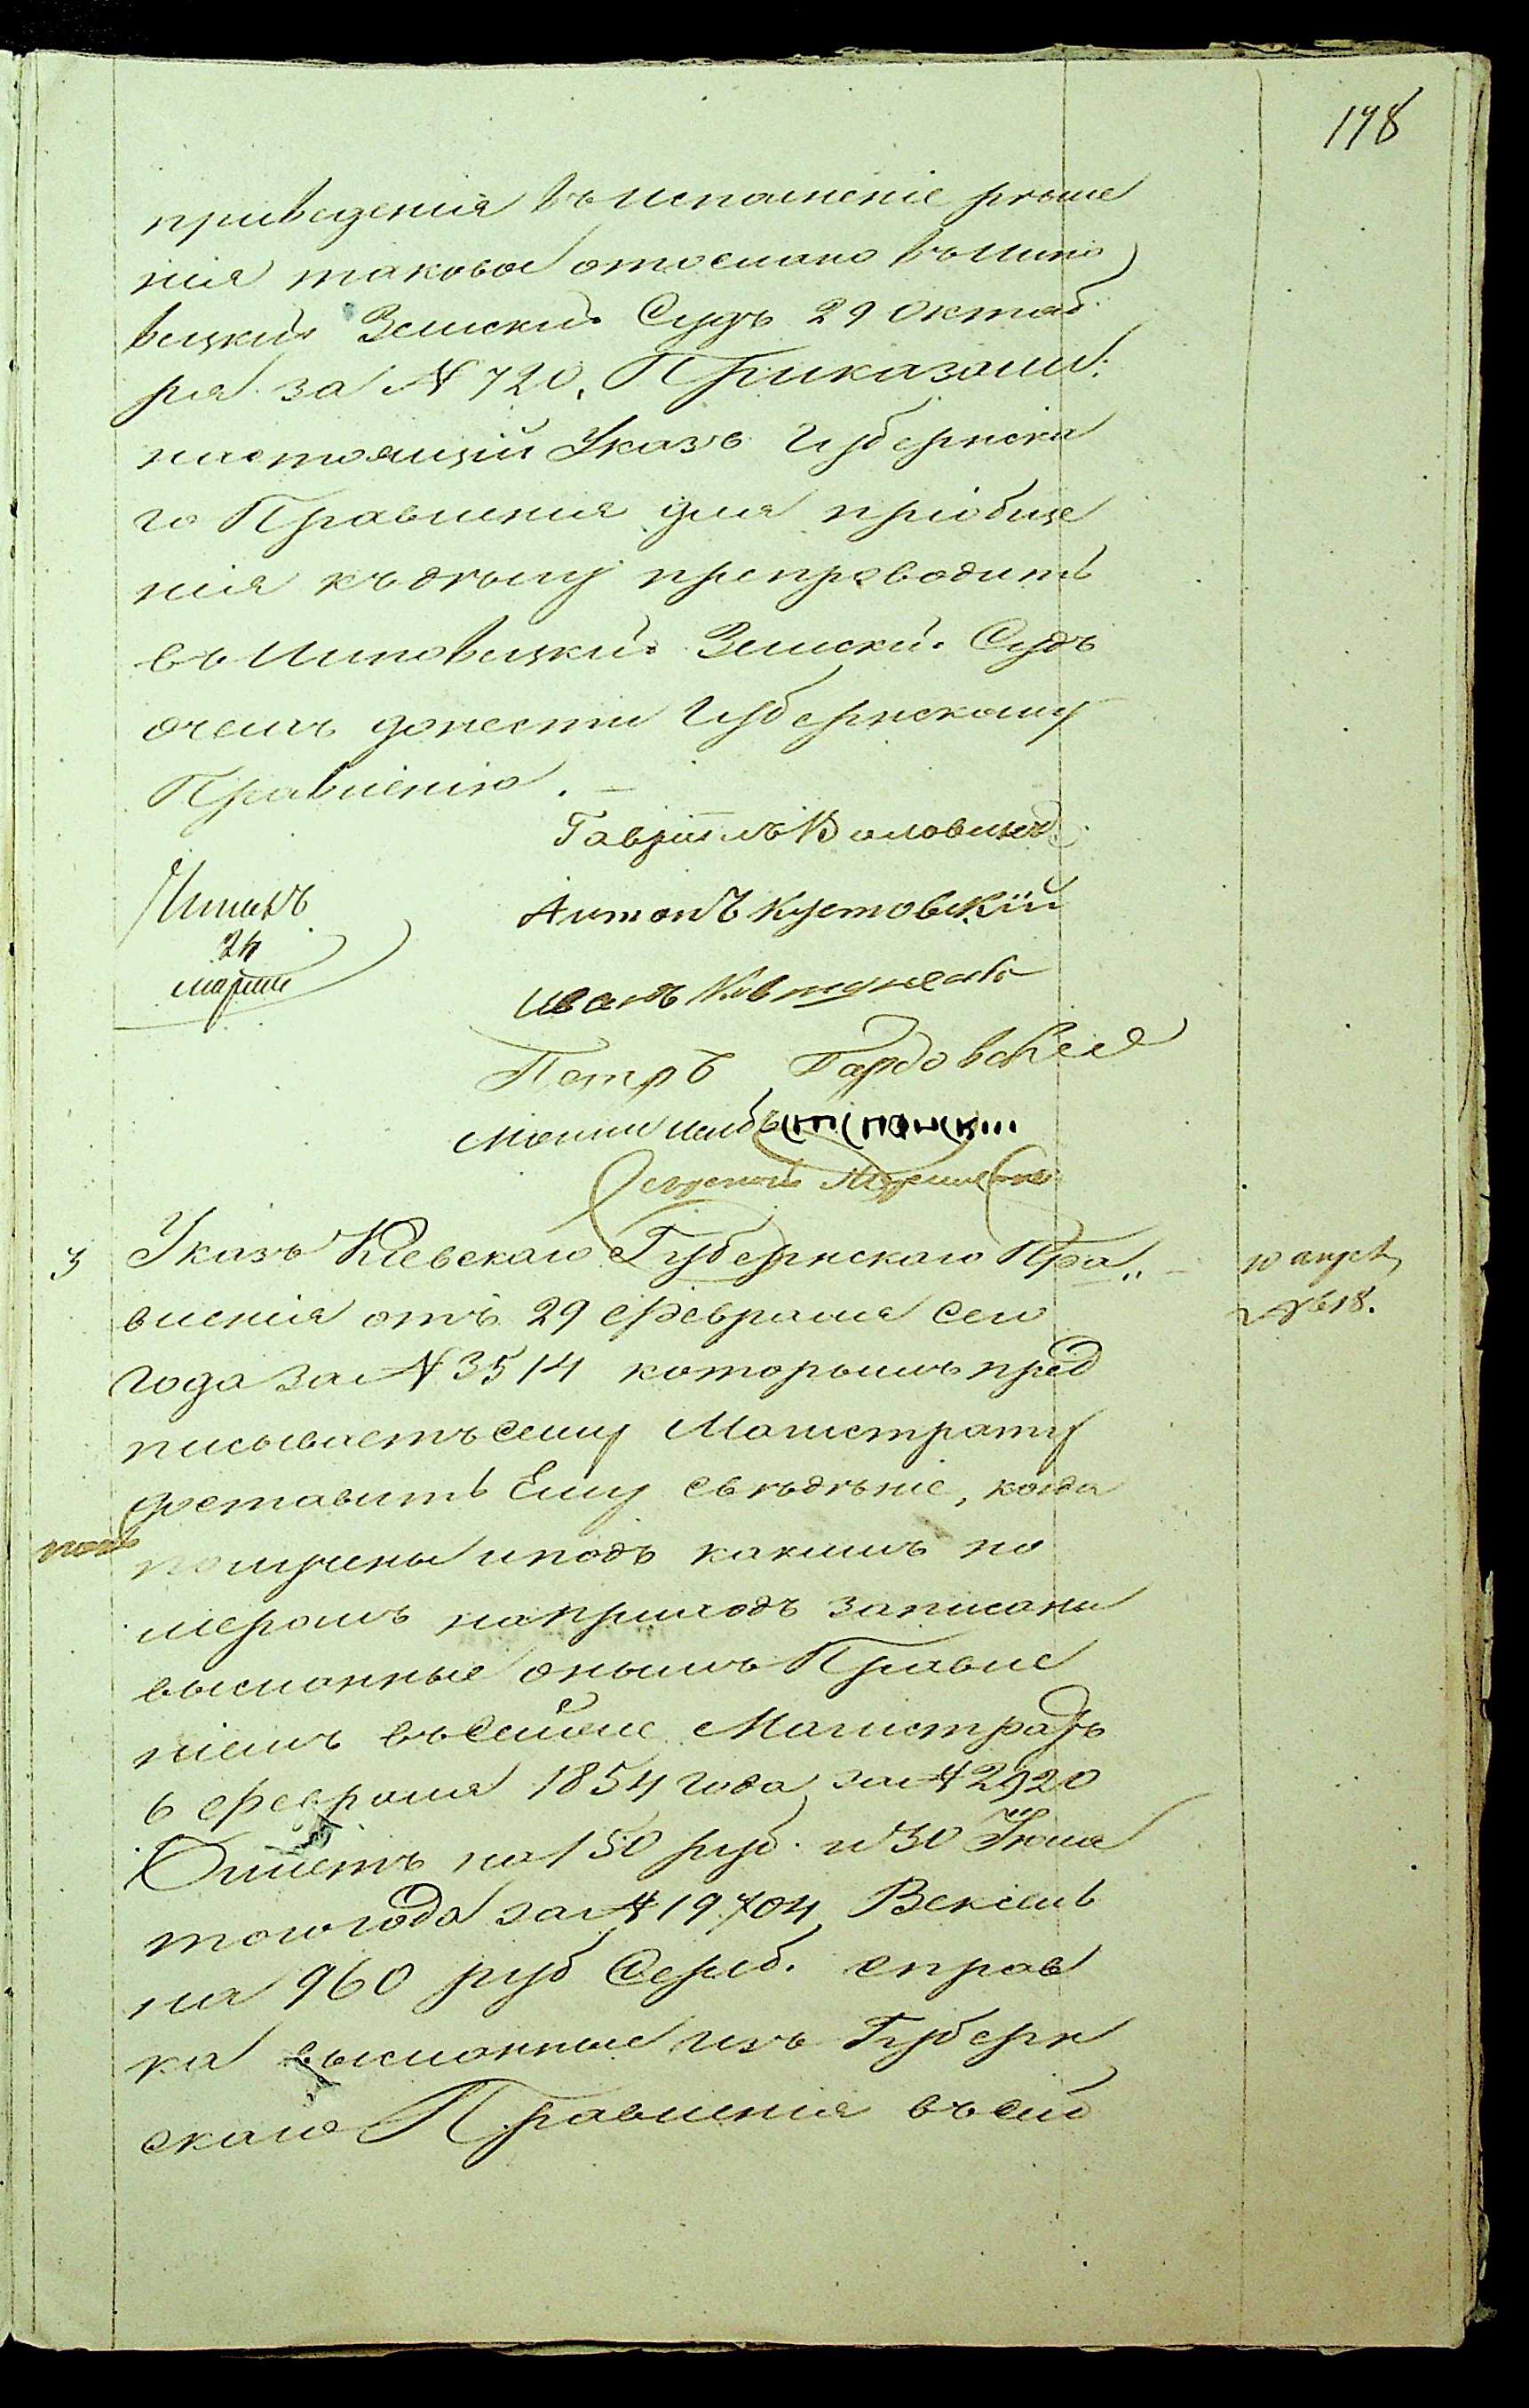 198
приведенія въ исполненіе рѣше
нія таковое отослано въ Липо
вецкій Земскій Судъ 29 Октяб
ря за № 720. Приказали:
настоящій Указъ Губернска
го Правленія для пріобще
нія къ дѣлу препроводить
въ Липовецкій Земскій Судъ
очемъ донести Губернскому
Правленію. —
Гавріилъ
Читалъ
24
марта
Антонъ Кустовскій
Иванъ
Петръ
3 Указъ Кіевскаго Губернскаго Пра„
10 апрѣл
№ 618.
вленія отъ 29 Февраля сего
года за № 3514 которымъ пред
писываетъ сему Магистрату
доставить Ему свѣдѣніе, когда
получены и подъ какимъ но
меромъ на приходъ записаны
высланные онымъ Правле
ніемъ въ сей Магистратъ
6 Февраля 1854 года за № 2920
Билетъ на 150 руб. и 30 Іюня
того года за № 19704 Вексель
на 960 руб Сереб. справ
ка высланные изъ Губерн
скаго Правленія въ сей